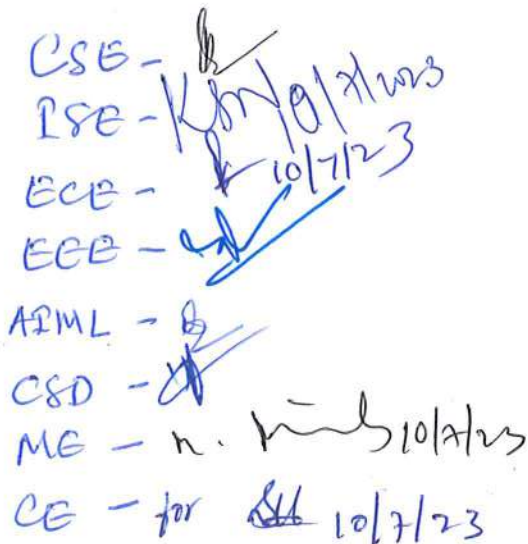 CSE -
ISE - 10/7/2023
ECE - 10/7/23
EEE -
AIML -
CSD -
ME - 10/7/23
CE - for 10/7/23